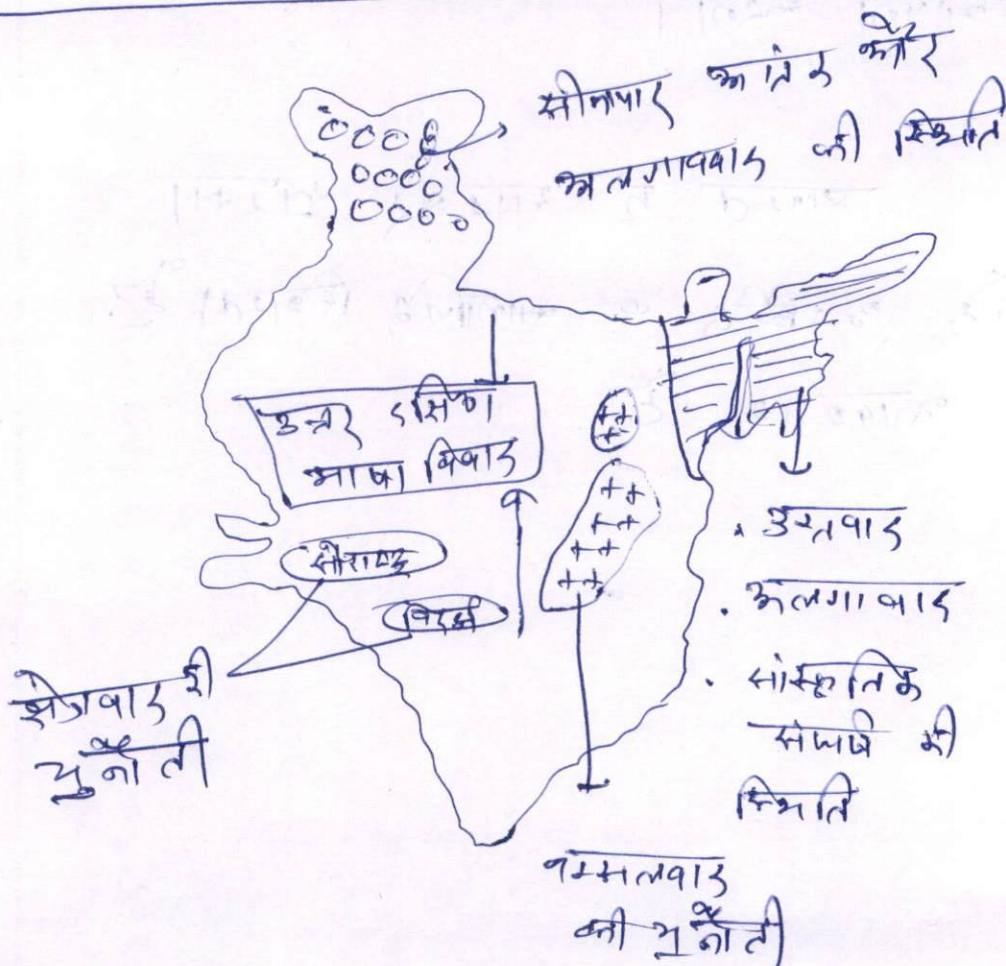 सीमापार आतंक और
अलगाववाद की स्थिति
उत्तर दक्षिण
भाषा विवाद
सौराष्ट्र
विदर्भ
क्षेत्रवाद की
चुनौती
. उग्रवाद
. अलगावाद
. सांस्कृतिक
संघर्ष की
स्थिति
नक्सलवाद
की चुनौती